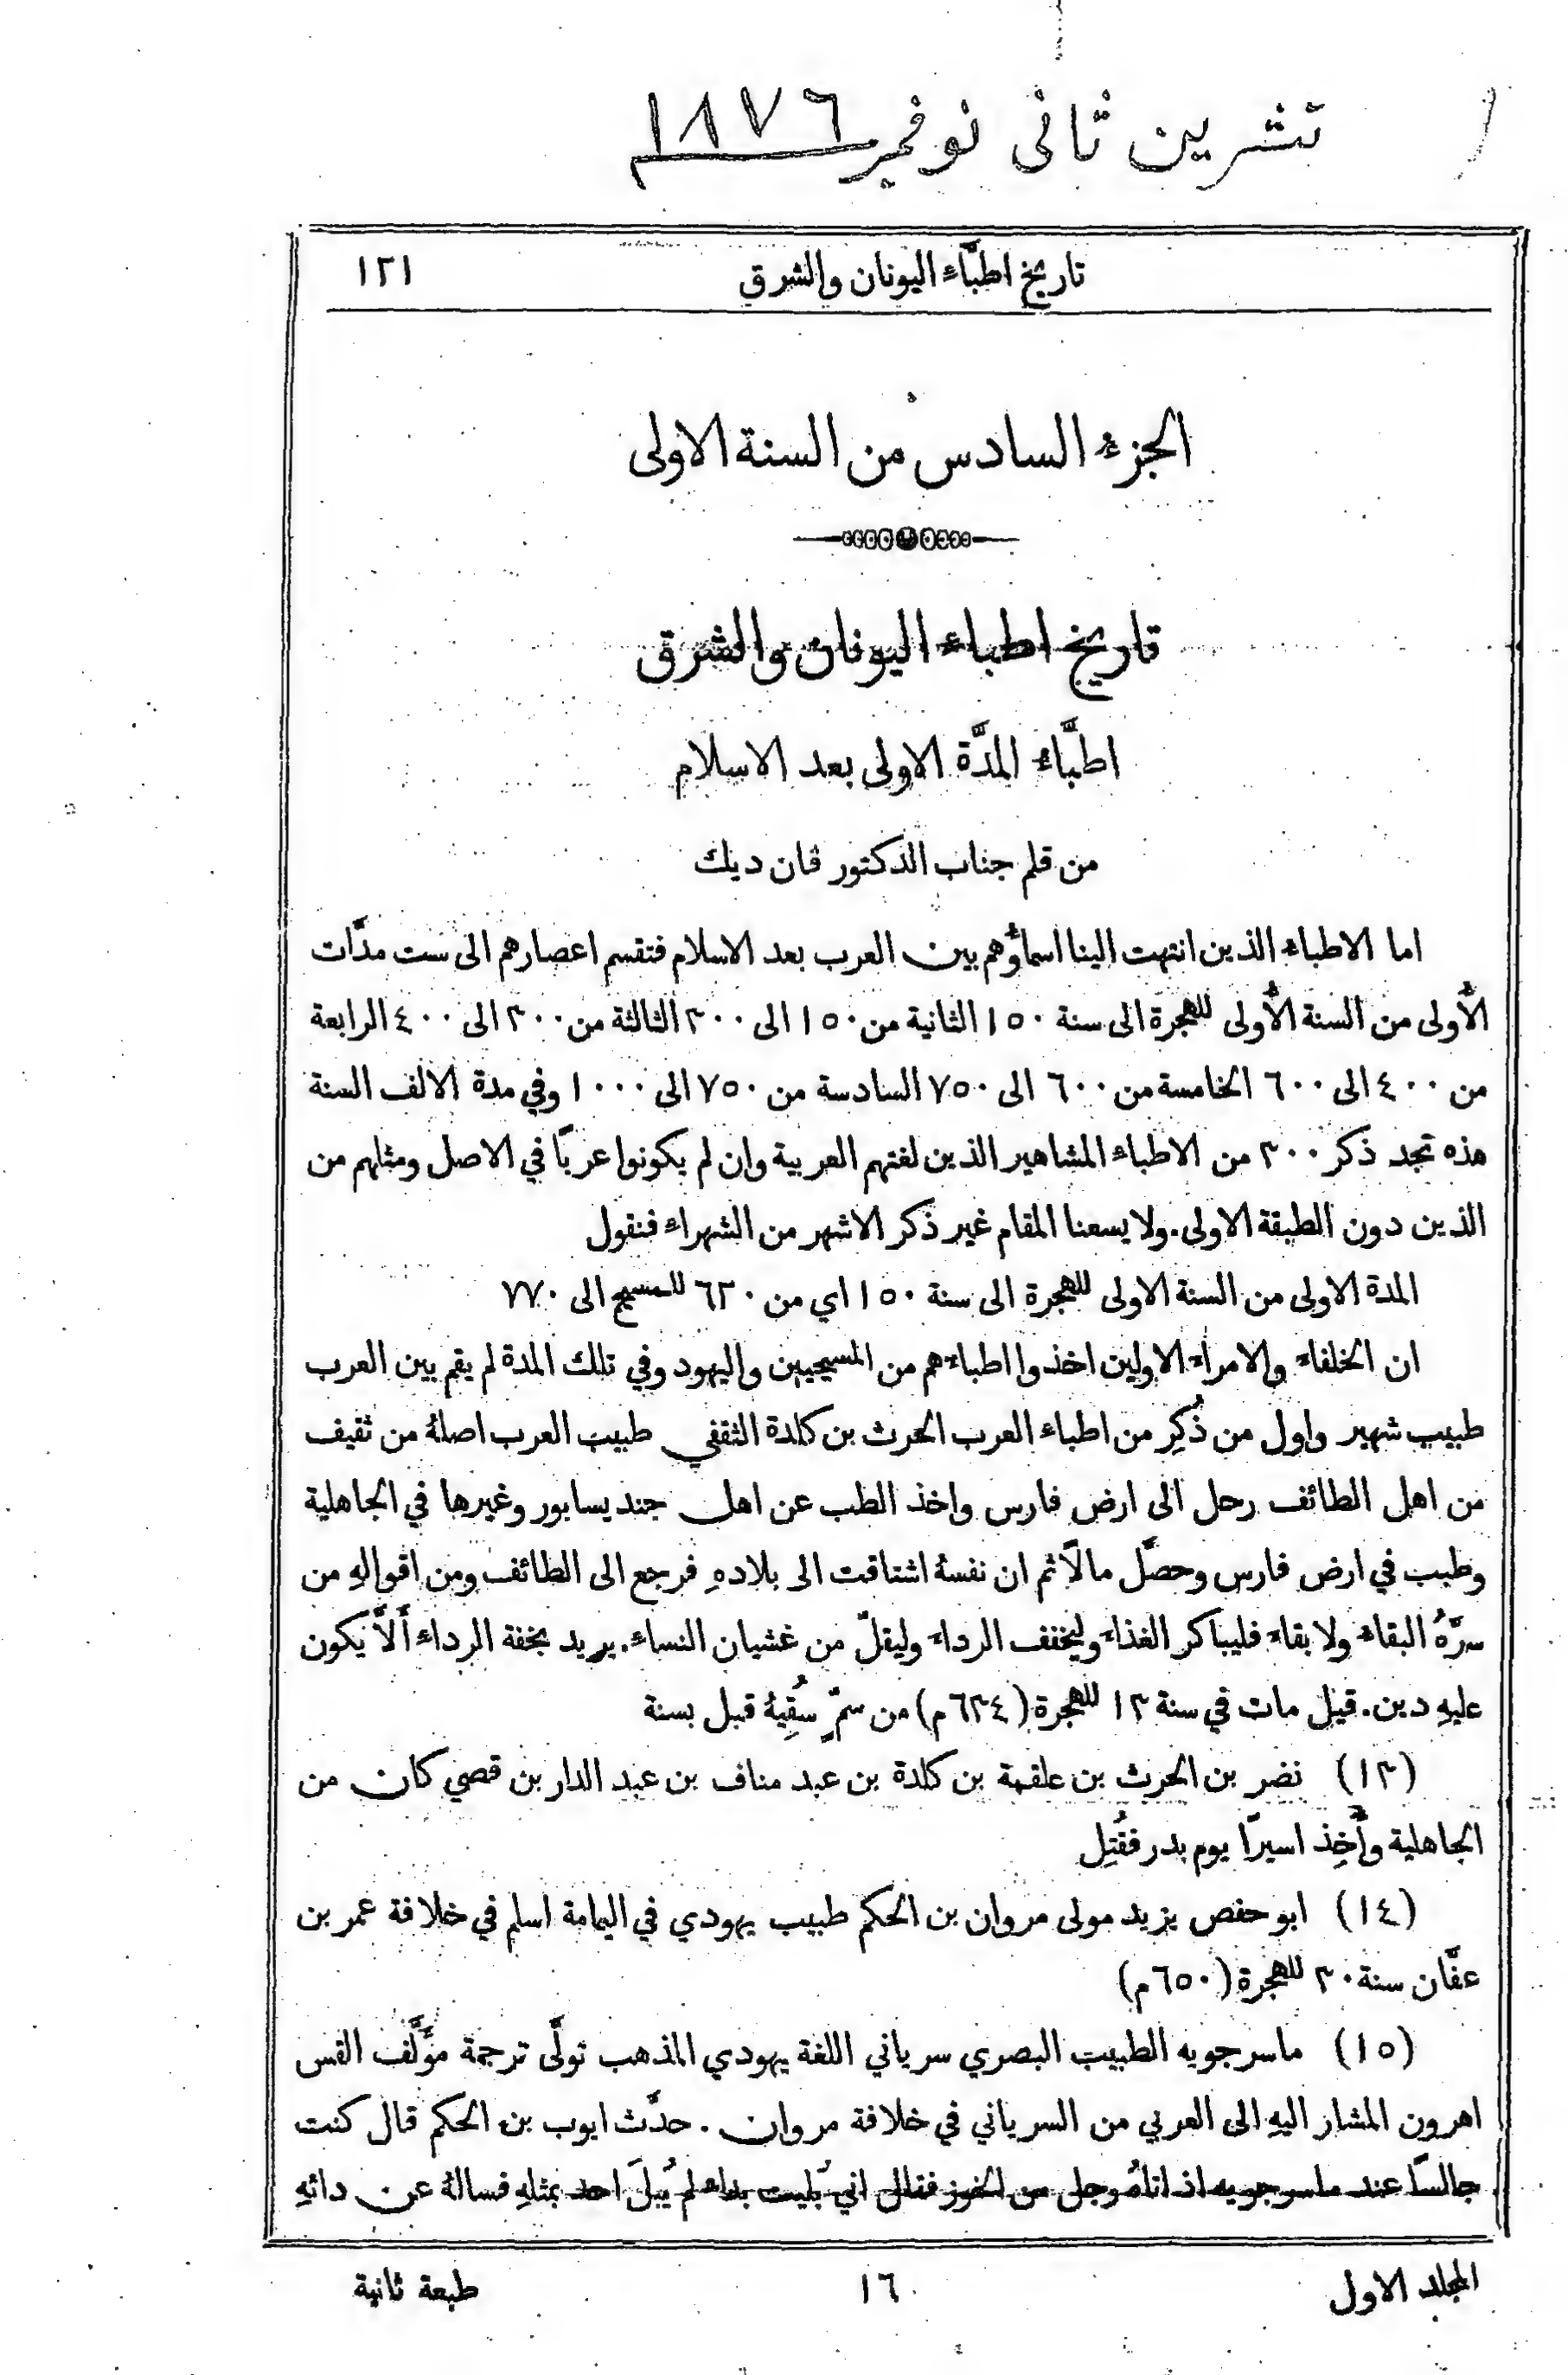 تشرين ثانى نوفمبر ١٨٧٦
تاريخ اطبَّاء اليونان والشرق ١٢١
الجزء السادس من السنة الاولى
تاريخ اطباء اليونان والشرق
اطبَّاء المدَّة الاولى بعد الاسلام
من قلم جناب الدكتور ڤان ديك
اما الاطباء الذين انتهت الينا اسماؤُهم بين العرب بعد الاسلام فتقسم اعصارهم الى ست مدَّات
الأُولى من السنة الأُولى للهجرة الى سنة ١٥٠ الثانية من ١٥٠ الى ٣٠٠ الثالثة من ٣٠٠ الى ٤٠٠ الرابعة
من ٤٠٠ الى ٦٠٠ الخامسة من ٦٠٠ الى ٧٥٠ السادسة من ٧٥٠ الى ١٠٠٠ وفي مدة الالف السنة
هذه تجد ذكر ٣٠٠ من الاطباء المشاهير الذين لغتهم العربية وان لم يكونوا عربًا في الاصل ومثلهم من
الذين دون الطبقة الاولى. ولا يسعنا المقام غير ذكر الاشهر من الشهراء فنقول
المدة الاولى من السنة الاولى للهجرة الى سنة ١٥٠ اي من ٦٢٠ للمسيح الى ٧٧٠
ان الخلفاء والامراء الاولين اخذوا اطباءهم من المسيحيين واليهود وفي تلك المدة لم يقم بين العرب
طبيب شهير واول من ذُكِر من اطباء العرب الحرث بن كلدة الثقفي طبيب العرب اصلهُ من ثقيف
من اهل الطائف رحل الى ارض فارس واخذ الطب عن اهل جنديسابور وغيرها في الجاهلية
وطبب في ارض فارس وحصَّل مالاً ثم ان نفسهُ اشتاقت الى بلادهِ فرجع الى الطائف ومن اقوالهِ من
سرَّهُ البقاء ولا بقاء فليباكر الغذاء وليخفف الرداء وليقلّ من غشيان النساء. يريد بخفة الرداء أَلاَّ يكون
عليهِ دين. قيل مات في سنة ١٣ للهجرة (٦٣٤ م) من سمٍّ سُقِيهُ قبل بسنة
(١٣) نضر بن الحرث بن علقمة بن كلدة بن عبد مناف بن عبد الدار بن قصي كان من
الجاهلية وأُخِذ اسيرًا يوم بدر فقُتِل
(١٤) ابو حفص يزيد مولى مروان بن الحكم طبيب يهودي في اليمامة اسلم في خلافة عمر بن
عفَّان سنة ٣٠ للهجرة (٦٥٠ م)
(١٥) ماسرجويه الطبيب البصري سرياني اللغة يهودي المذهب تولَّى ترجمة مؤَلَّف القس
اهرون المشار اليهِ الى العربي من السرياني في خلافة مروان. حدَّث ايوب بن الحكم قال كنت
جالسًا عند ماسرجويه اذ اتاهُ رجل من الخوز فقال اني بُليت بداء لم يُبلَ احد بمثلهِ فسالهُ عن دائهِ
المجلد الاول ١٦ طبعة ثانية